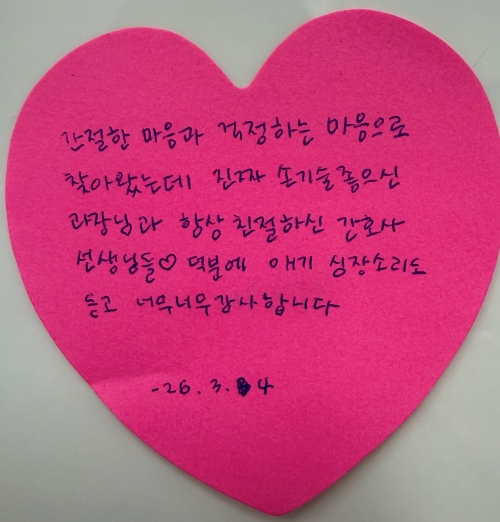 간절한 마음과 걱정하는 마음으로
찾아왔는데 진짜 손기술좋으신
과장님과 항상 친절하신 간호사
선생님들♡ 덕분에 애기 심장소리도
듣고 너무너무감사합니다
-26.3.4